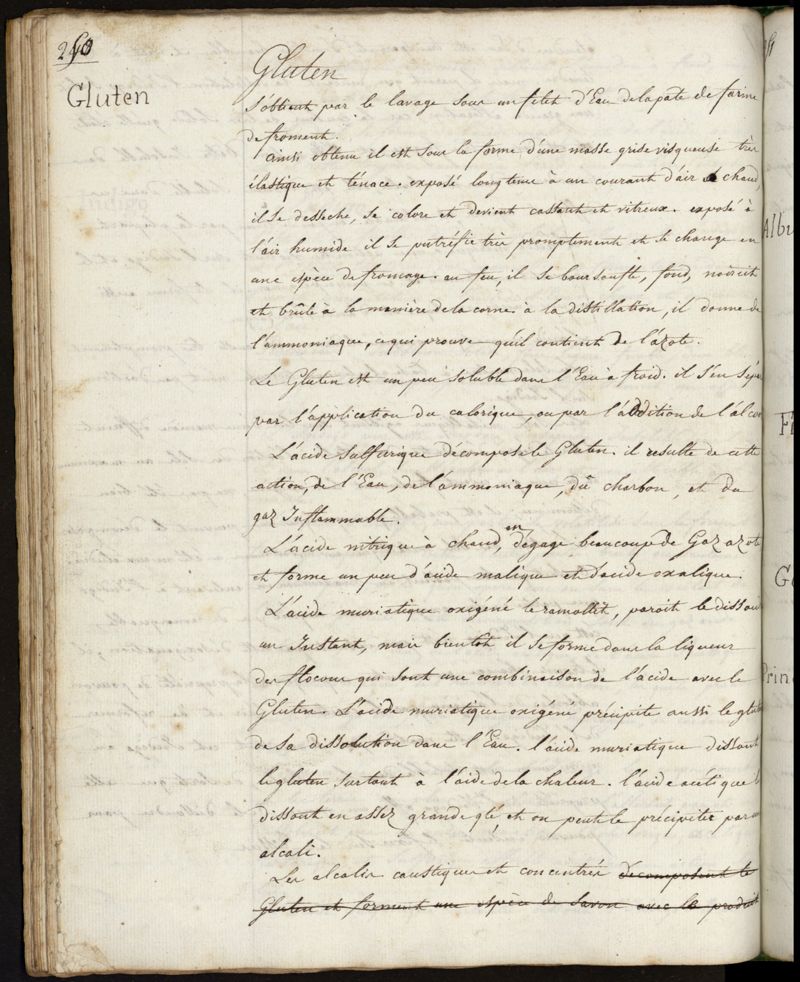 250
Gluten
Gluten
s'obtient par le lavage sous un filet d'Eau de la pate de farine
de froment.
ainsi obtenu il est sous la forme d'une masse grise visqueuse très
élastique et ténace. exposé longtems à un courant d'air chaud,
il se desseche, se colore et devient cassant et vitreux. exposé à
l'air humide il se putréfie très promptement et se change en
une espèce de fromage. au feu, il se boursoufle, fond, noircit
et brûle à la manière de la corne. à la distillation, il donne de
l'ammoniaque, ce qui prouve qu'il contient de l'azote.
Le Gluten est un peu soluble dans l'Eau à froid. il s'en sépa
par l'application du calorique, ou par l'addition de l'alcoo
L'acide sulfurique décompose le Gluten. il resulte de cette
action, de l'Eau, de l'ammoniaque, du charbon, et du
gaz Inflammable.
L'acide nitrique à chaud, en dégage beaucoup de Gaz azote
et forme un peu d'acide malique et d'acide oxalique.
L'acide muriatique oxigéné le ramollit, paroit le dissou
un Instant, mais bientôt il se forme dans la liqueur
des flocons qui sont une combinaison de l'acide avec le
Gluten. L'acide muriatique oxigéné précipite aussi le glute
de sa dissolution dans l'Eau. l'acide muriatique dissout
le gluten surtout à l'aide de la chaleur. l'acide acétique le
dissout en assez grande qté, et on peut le précipiter par un
alcali.
Les alcalis caustiques et concentrés décomposent le
Gluten et forment une espèce de savon avec le produit
Albu
Fi
Prin